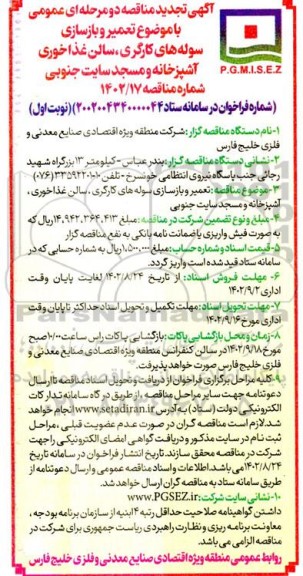 آگهی تجدید مناقصه دو مرحله ای عمومی
با موضوع تعمیر و بازسازی
سوله های کارگری ، سالن غذاخوری
آشپزخانه و مسجد سایت جنوبی
شماره مناقصه ۱۴۰۲/۱۷
P.G.M.I.S.E.Z
(شماره فراخوان در سامانه ستاد ۲۰۰۲۰۰۴۳۴۰۰۰۰۰۴۴) (نوبت اول)
۱-نام دستگاه مناقصه گزار: شرکت منطقه ویژه اقتصادی صنایع معدنی و
فلزی خلیج فارس
۲-نشانی دستگاه مناقصه گزار: بندرعباس - کیلومتر ۱۳ بزرگراه شهید
رجائی جنب پاسگاه نیروی انتظامی خونسرخ - تلفن: ۱۰-۳۳۵۹۲۲۰۱(۰۷۶)
۳-موضوع مناقصه: تعمیر و بازسازی سوله های کارگری، سالن غذاخوری ،
آشپزخانه و مسجد سایت جنوبی
۴-مبلغ و نوع تضمین شرکت در مناقصه: مبلغ ۱۴,۹۴۲,۳۶۴,۴۱۳ ریال که
به صورت فیش واریزی یا ضمانت نامه بانکی به نفع مناقصه گزار
۵-قیمت اسناد و شماره حساب: مبلغ ۱,۵۰۰,۰۰۰ ریال به شماره حسابی که در
سامانه ستاد قید شده است واریز گردد.
۶- مهلت فروش اسناد: از تاریخ ۱۴۰۲/۸/۲۴ لغایت پایان وقت
اداری ۱۴۰۲/۹/۲
۷-مهلت تحویل اسناد: مهلت تکمیل و تحویل اسناد حداکثر تا پایان وقت
اداری مورخ ۱۴۰۲/۹/۱۶
۸-زمان و محل بازگشایی پاکات: بازگشایی پاکات راس ساعت ۱۰:۰۰ صبح
مورخ ۱۴۰۲/۹/۱۸ در سالن کنفرانس منطقه ویژه اقتصادی صنایع معدنی و
فلزی خلیج فارس صورت خواهد پذیرفت.
۹-کلیه مراحل برگزاری فراخوان از دریافت و تحویل اسناد مناقصه تا ارسال
دعوتنامه جهت سایر مراحل مناقصه، از طریق درگاه سامانه تدارکات
الکترونیکی دولت (ستاد) به آدرس www.setadiran.ir انجام خواهد
شد. لازم است مناقصه گران در صورت عدم عضویت قبلی ، مراحل
ثبت نام در سایت مذکور و دریافت گواهی امضای الکترونیکی را جهت
شرکت در مناقصه محقق سازند. تاریخ انتشار فراخوان در سامانه تاریخ
۱۴۰۲/۸/۲۴ می باشد. اطلاعات و اسناد مناقصه عمومی و ارسال دعوتنامه از
طریق سامانه ستاد به مناقصه گران ارسال خواهد شد.
۱۰-نشانی سایت شرکت: www.PGSEZ.ir
داشتن گواهینامه صلاحیت حداقل رتبه ۴ ابنیه از سازمان برنامه بودجه ،
معاونت برنامه ریزی و نظارت راهبردی ریاست جمهوری برای شرکت در
مناقصه الزامی می باشد.
روابط عمومی منطقه ویژه اقتصادی صنایع معدنی و فلزی خلیج فارس